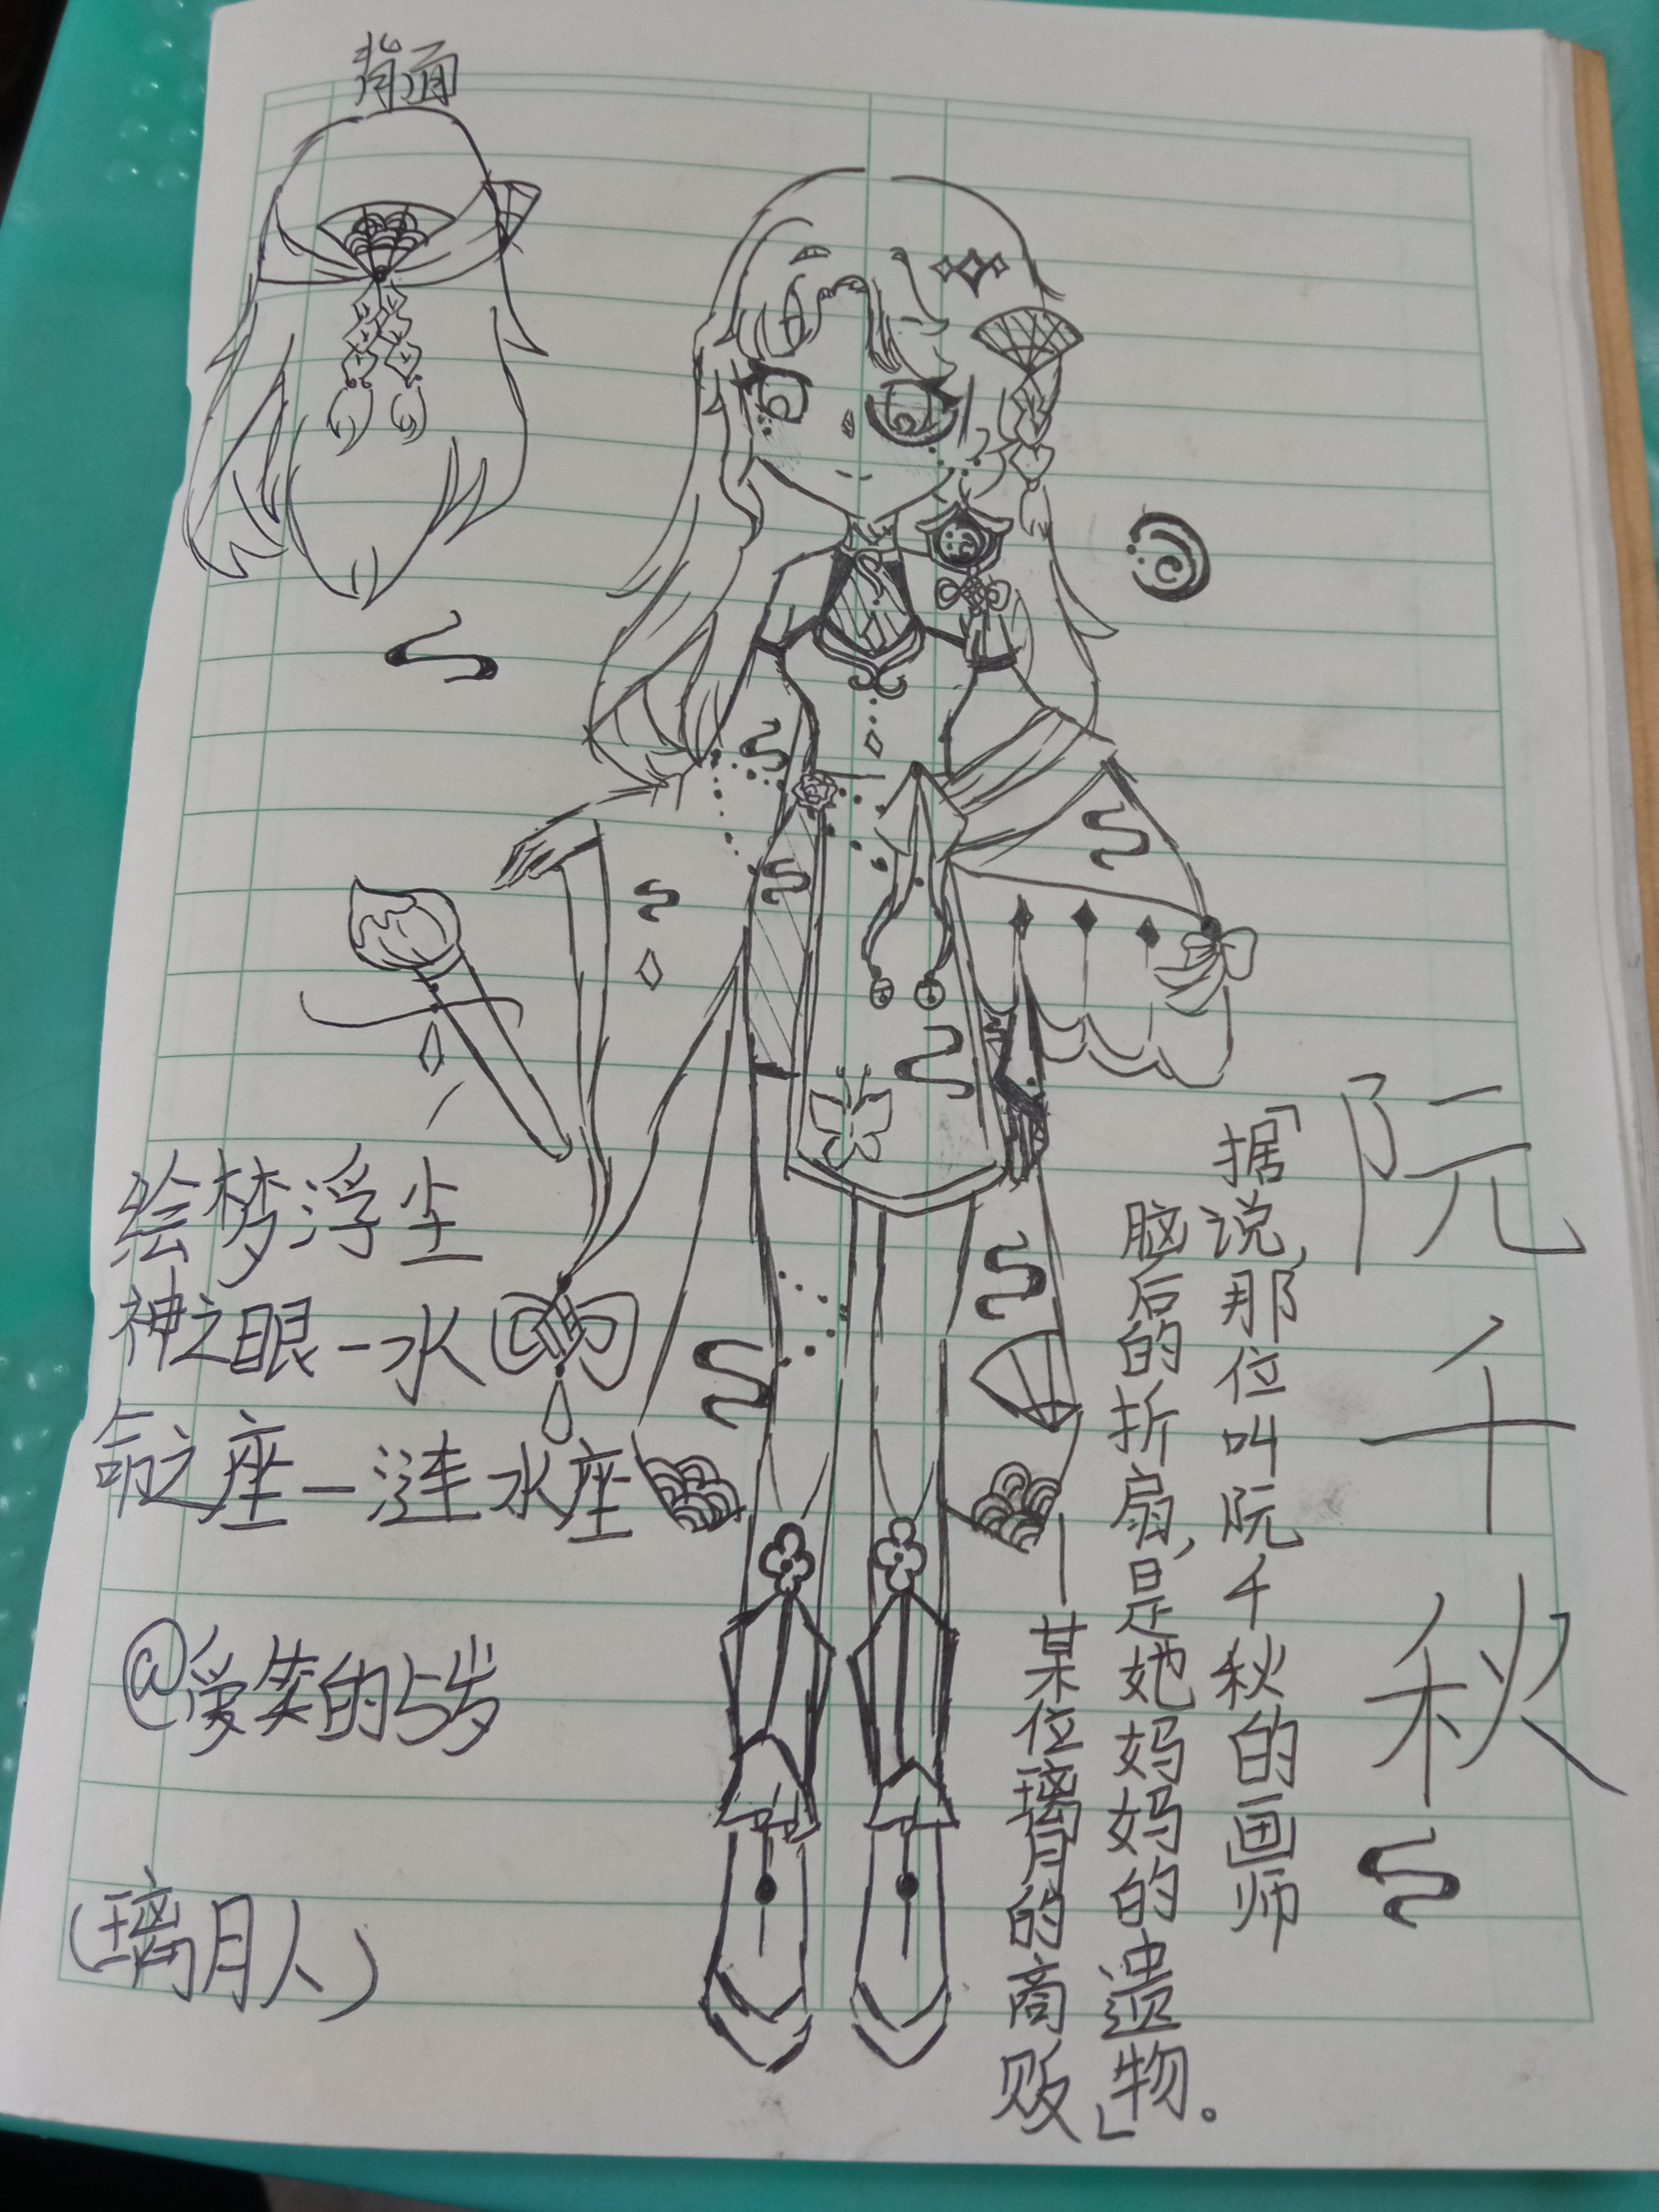 背面
阮千秋
「据说,那位叫阮千秋的画师
脑后的折扇,是她妈妈的遗物。」
——某位璃月的商贩
绘梦浮尘
神之眼—水
命之座—涟水座
@爱笑的5岁
(璃月人)